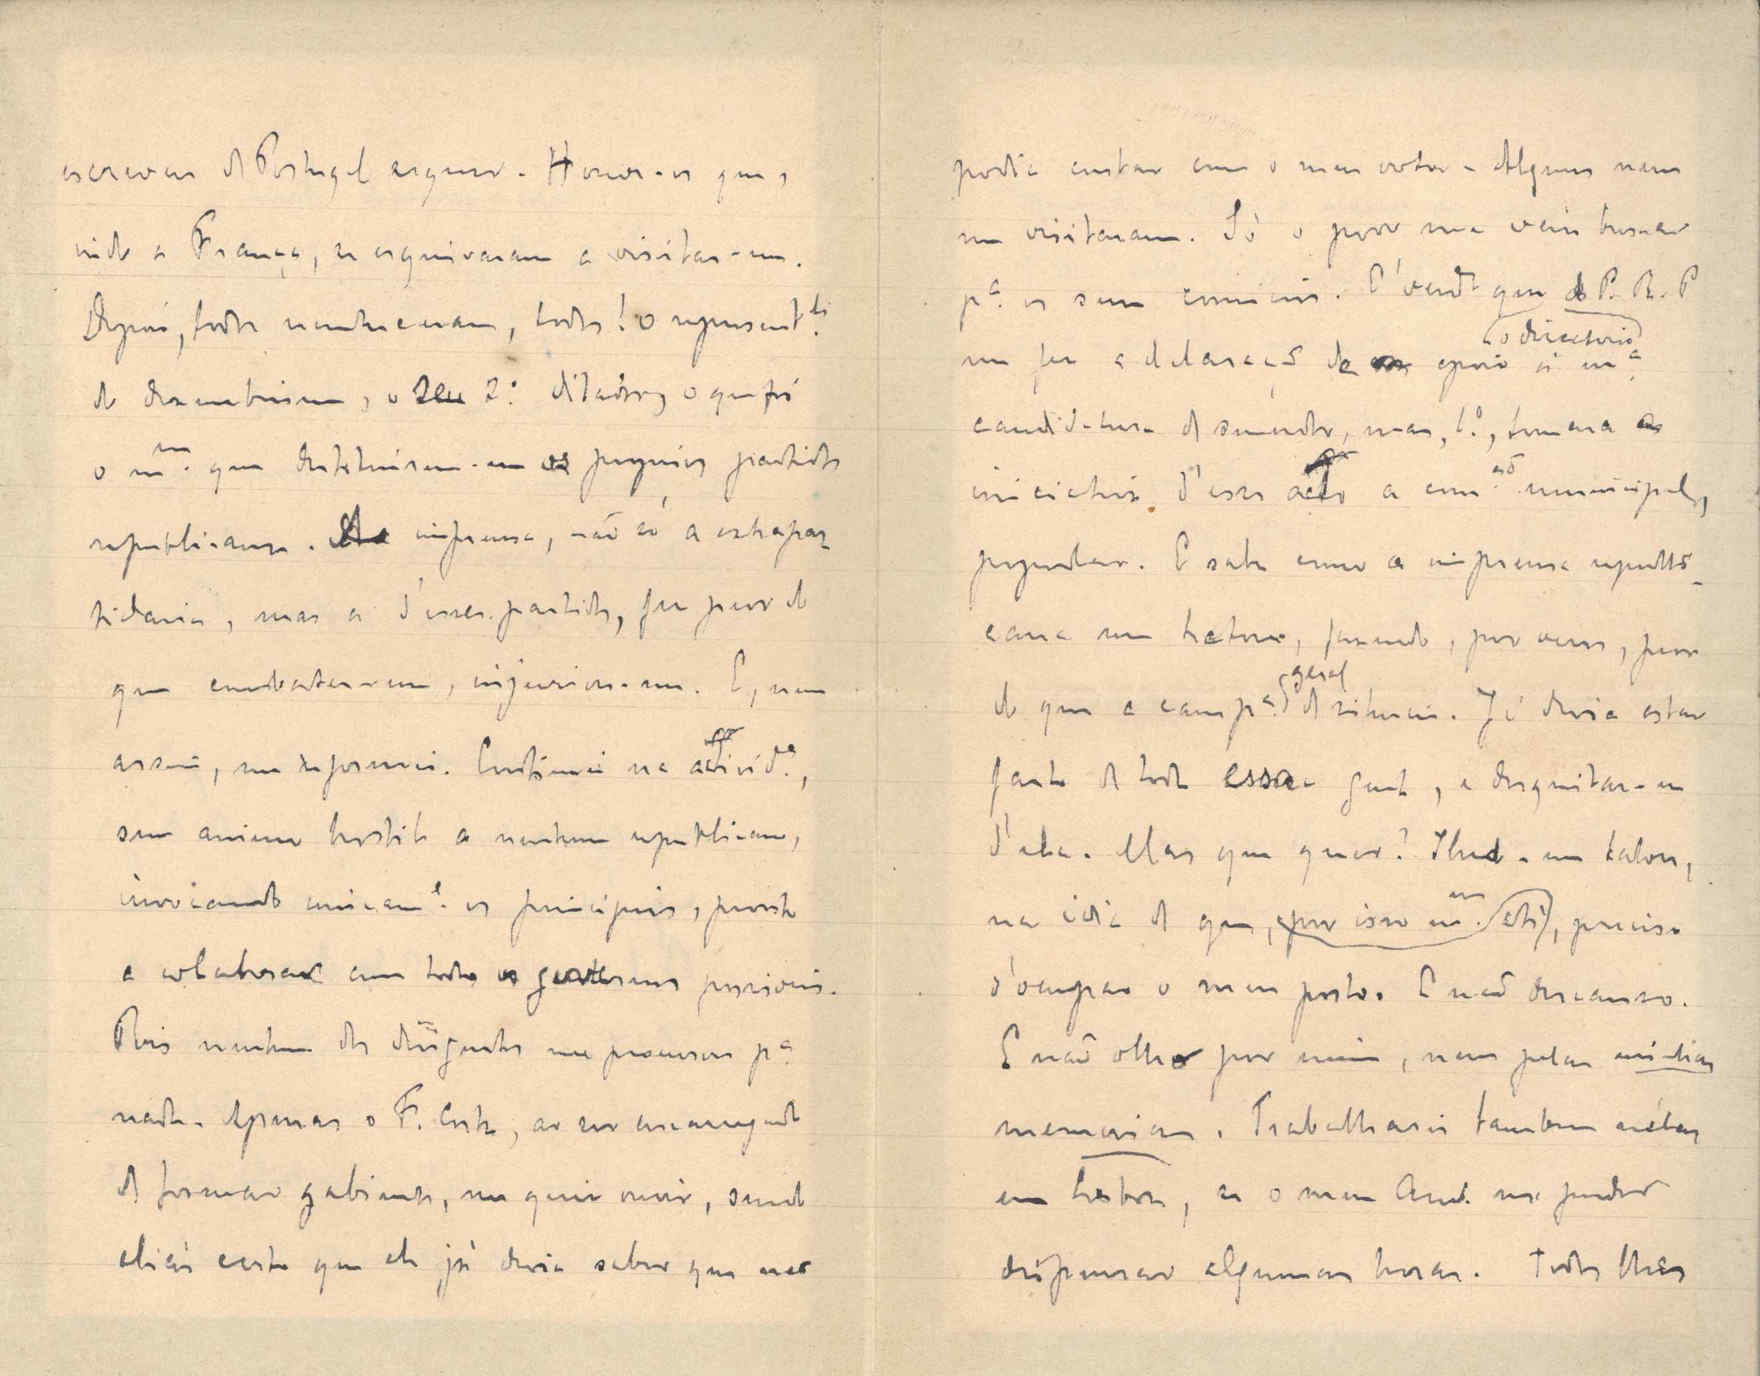 escrever de Portugal sequer. Houve-os que,
vindo a França, se esquivaram a visitar-me.
Depois, todos reentraram, todos! O represent.te
do dezembrismo, o seu 2.º ditador, o que foi
o m.mo que detiveram-me os proprios partidos
republicanos. A imprensa, não só a extrapar-
tidaria, mas a d'esses partidos, fez peor do
que combater-me, injuriou-me. E, nem
assim, me reformei. Continuei na activid.e,
sem animo hostil a nenhum republicano,
invocando unicam.e os principios, prompto
a colaborar com todos os governos possiveis.
Pois nenhum dos dirigentes me procurou p.a
nada. Apenas o F. Costa, ao ser encarregado
de formar gabinete, me quiz ouvir, sendo
aliás certo que ele já devia saber que não
podia contar com o meu voto. Alguns nem
me visitaram. Só o povo me vem buscar
p.a os seus comicios. É verd.e que do P. R. P.
o directorio
me fez a declaração de apoio á m.a
candidatura de senador, mas, 1.º, tomara a
iniciativa d'esse acto a com.ão municipal,
popular. E sabe como a imprensa republi-
cana me tratou, fazendo, por vezes, peor
do que a camp.a geral de silencio. Já devia estar
farto de toda essa gente, e desquitar-me
d'ela. Mas que quer? Iludo-me talvez,
na ideia de que, por isso m.mo, preciso
d'ocupar o meu posto. E não descanso.
E não olho por mim, nem pelas minhas
memorias. Trabalharei tambem nelas
em Lisboa, se o meu Am.o me puder
dispensar algumas horas. Todos lhes